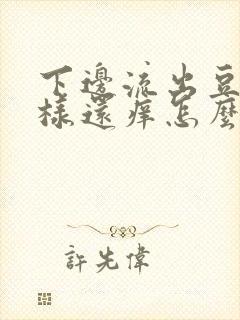 下邊流出豆
樣還癢怎麼
許先偉